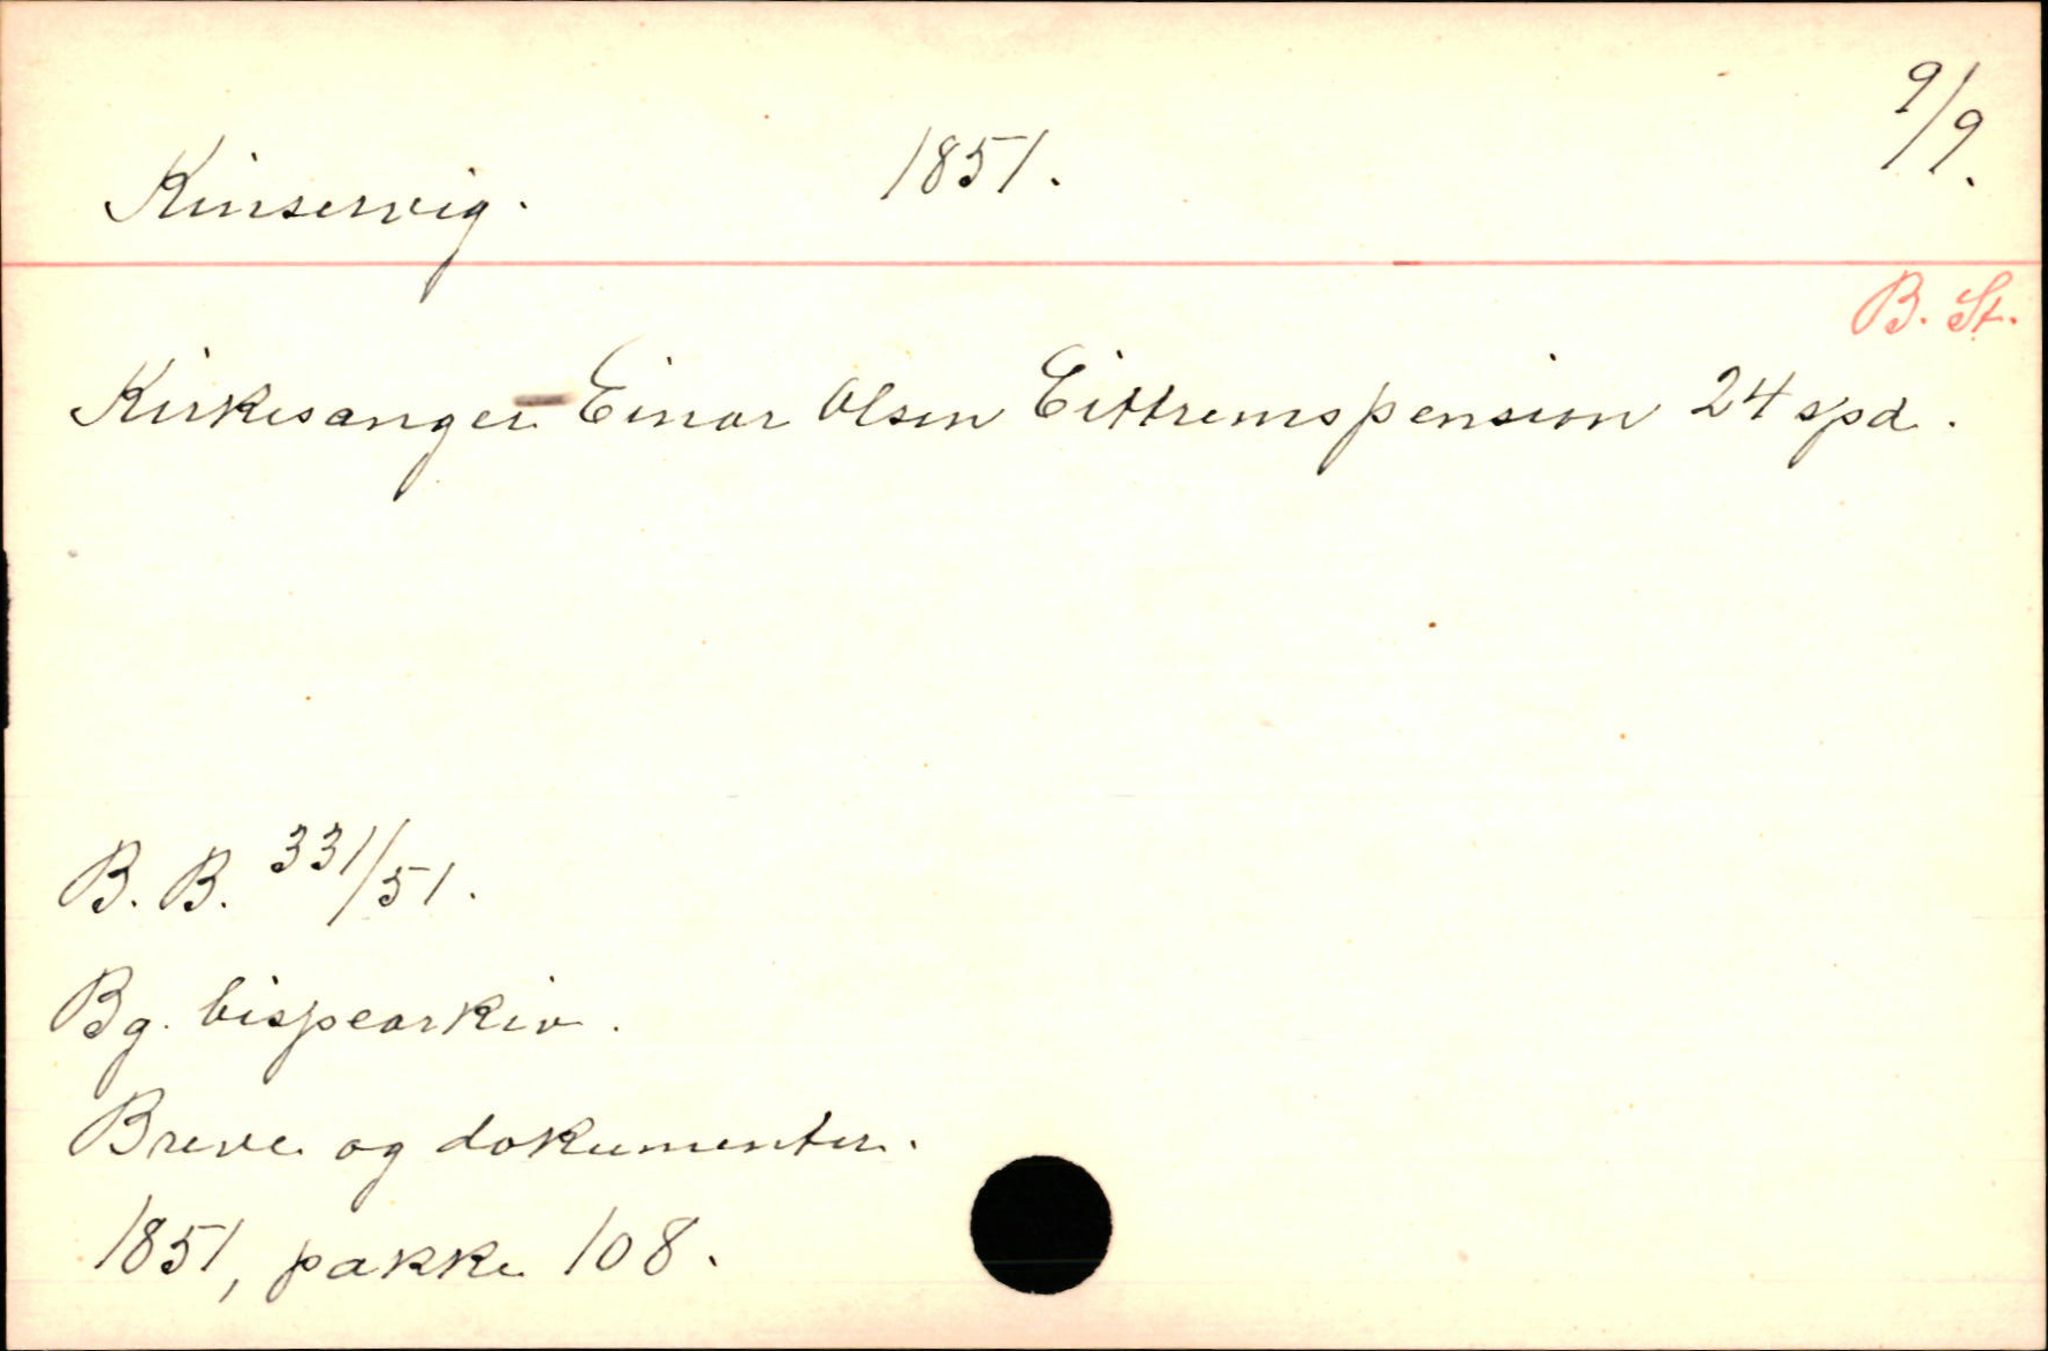 Kinservig. 1851. 9/9.
B. St.
Kirkesanger Einar Olsen Eittremspension 24 spd.
B. B. 331/51.
Bg. bispearkiv.
Breve og dokumenter.
1851, pakke 108.